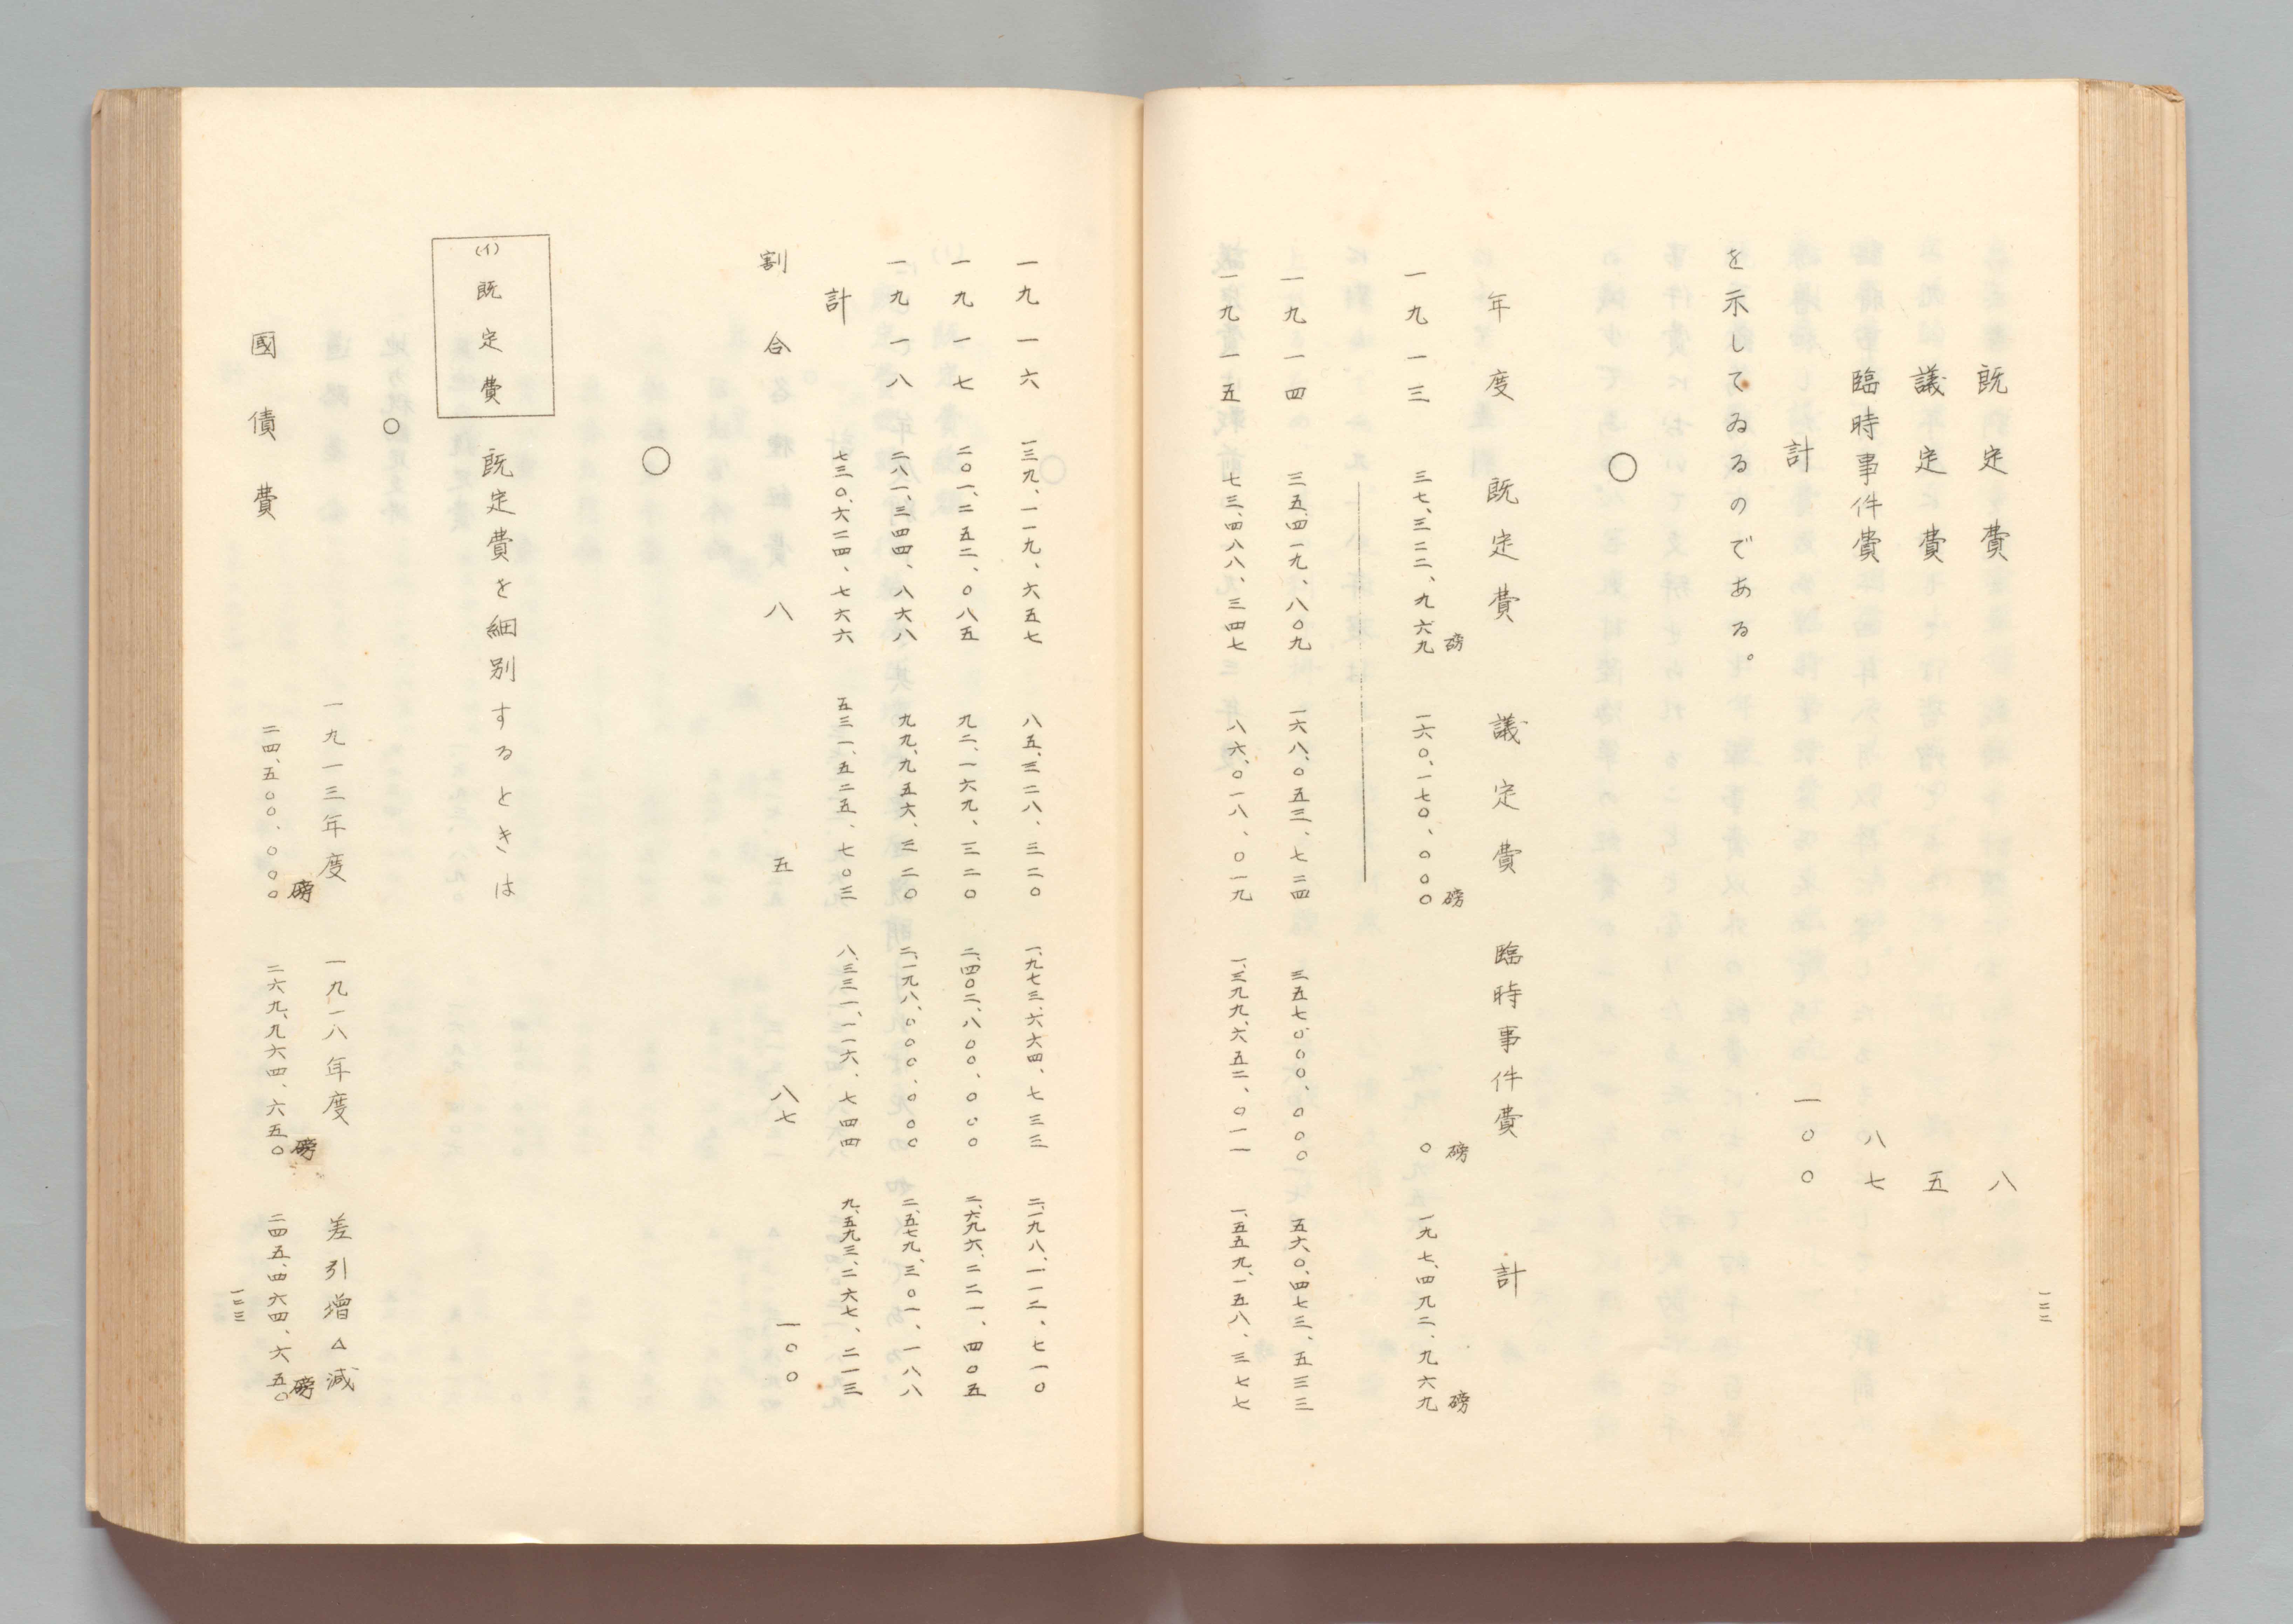 既定費 八
議定費 五
臨時事件費 八七
計 一〇〇
を示してゐるのである。
○
年度 既定費 議定費 臨時事件費 計
磅 磅 磅 磅
一九一三 三七、三二二、九六九 一六〇、一七〇、〇〇〇 〇 一九七、四九二、九六九
一九一四 三五、四一九、八〇九 一六八、〇五三、七二四 三五七、〇〇〇、〇〇〇 五六〇、四七三、五三三
一九一五 七三、四八八、三四七 八六、〇一八、〇一九 一、三九九、六五二、〇一一 一、五五九、一五八、三七七
一二二
一九一六 一三九、一一九、六五七 八五、三二八、三二〇 一、九七三、六六四、七三三 二、一九八、一一二、七一〇
一九一七 二〇一、二五二、〇八五 九二、一六九、三二〇 二、四〇二、八〇〇、〇〇〇 二、六九六、二二一、四〇五
一九一八 二八一、三四四、八六八 九九、九五六、三二〇 二、一九八、〇〇〇、〇〇〇 二、五七九、三〇一、一八八
計 七三〇、六二四、七六六 五三一、五二五、七〇三 八、三三一、一一六、七四四 九、五九三、二六七、二一三
割合 八 五 八七 一〇〇
○
(イ)既定費 既定費を細別するときは
○
一九一三年度 一九一八年度 差引増△減
磅 磅 磅
國債費 二四、五〇〇、〇〇〇 二六九、九六四、六五〇 二四五、四六四、六五〇
一二三